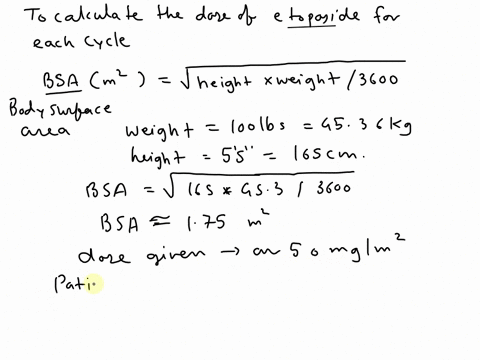 To calculate the dose of etoposide for
each cycle
BSA (m²) = √height × weight / 3600
Body surface
area
weight = 100lbs = 45.36kg
height = 5'5" = 165cm.
BSA = √165 * 45.3 / 3600
BSA ≈ 1.75 m²
dose given → on 50 mg/m²
Pati